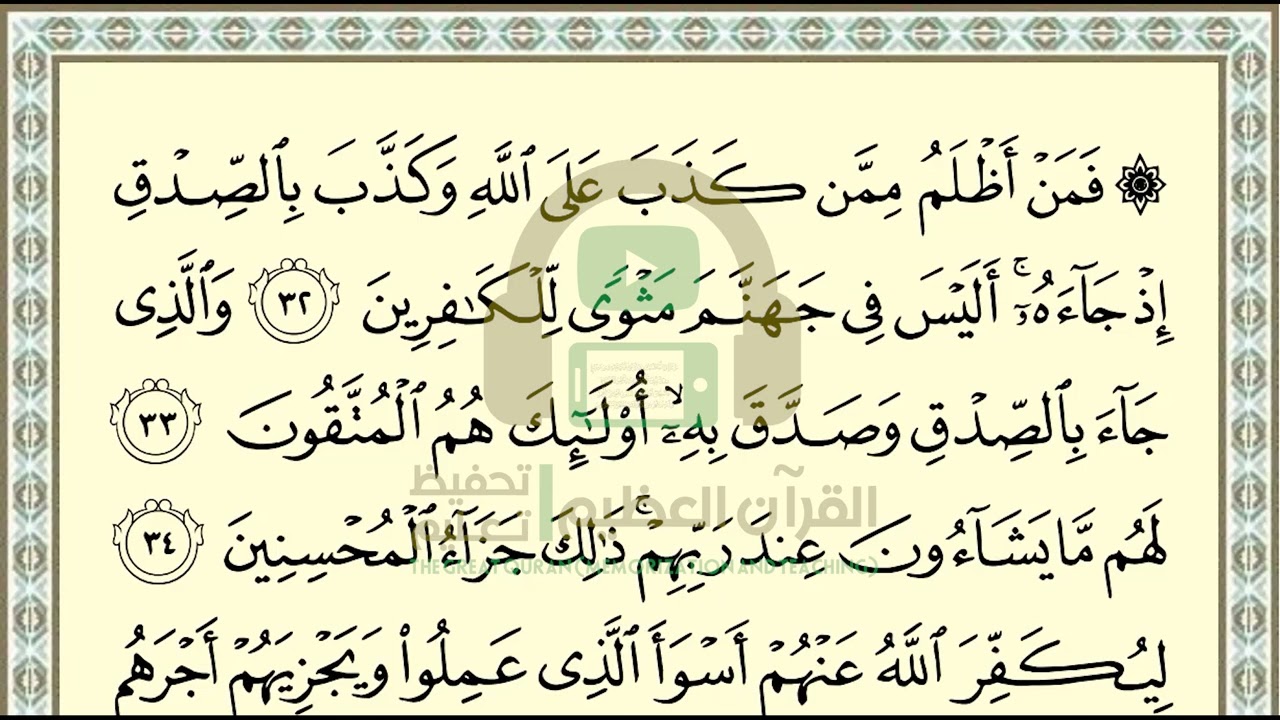 ۞ فَمَنۡ أَظۡلَمُ مِمَّن كَذَبَ عَلَى ٱللَّهِ وَكَذَّبَ بِٱلصِّدۡقِ
إِذۡ جَآءَهُۥٓۚ أَلَيۡسَ فِى جَهَنَّمَ مَثۡوٗى لِّلۡكَٰفِرِينَ ٣٢ وَٱلَّذِى
جَآءَ بِٱلصِّدۡقِ وَصَدَّقَ بِهِۦٓۙ أُوْلَٰٓئِكَ هُمُ ٱلۡمُتَّقُونَ ٣٣
القرآن العظيم | تحفيظ تعليم
لَهُم مَّا يَشَآءُونَ عِندَ رَبِّهِمۡۚ ذَٰلِكَ جَزَآءُ ٱلۡمُحۡسِنِينَ ٣٤
THE GREAT QURAN ( MEMORIZATION AND TEACHING )
لِيُكَفِّرَ ٱللَّهُ عَنۡهُمۡ أَسۡوَأَ ٱلَّذِى عَمِلُواْ وَيَجۡزِيَهُمۡ أَجۡرَهُم